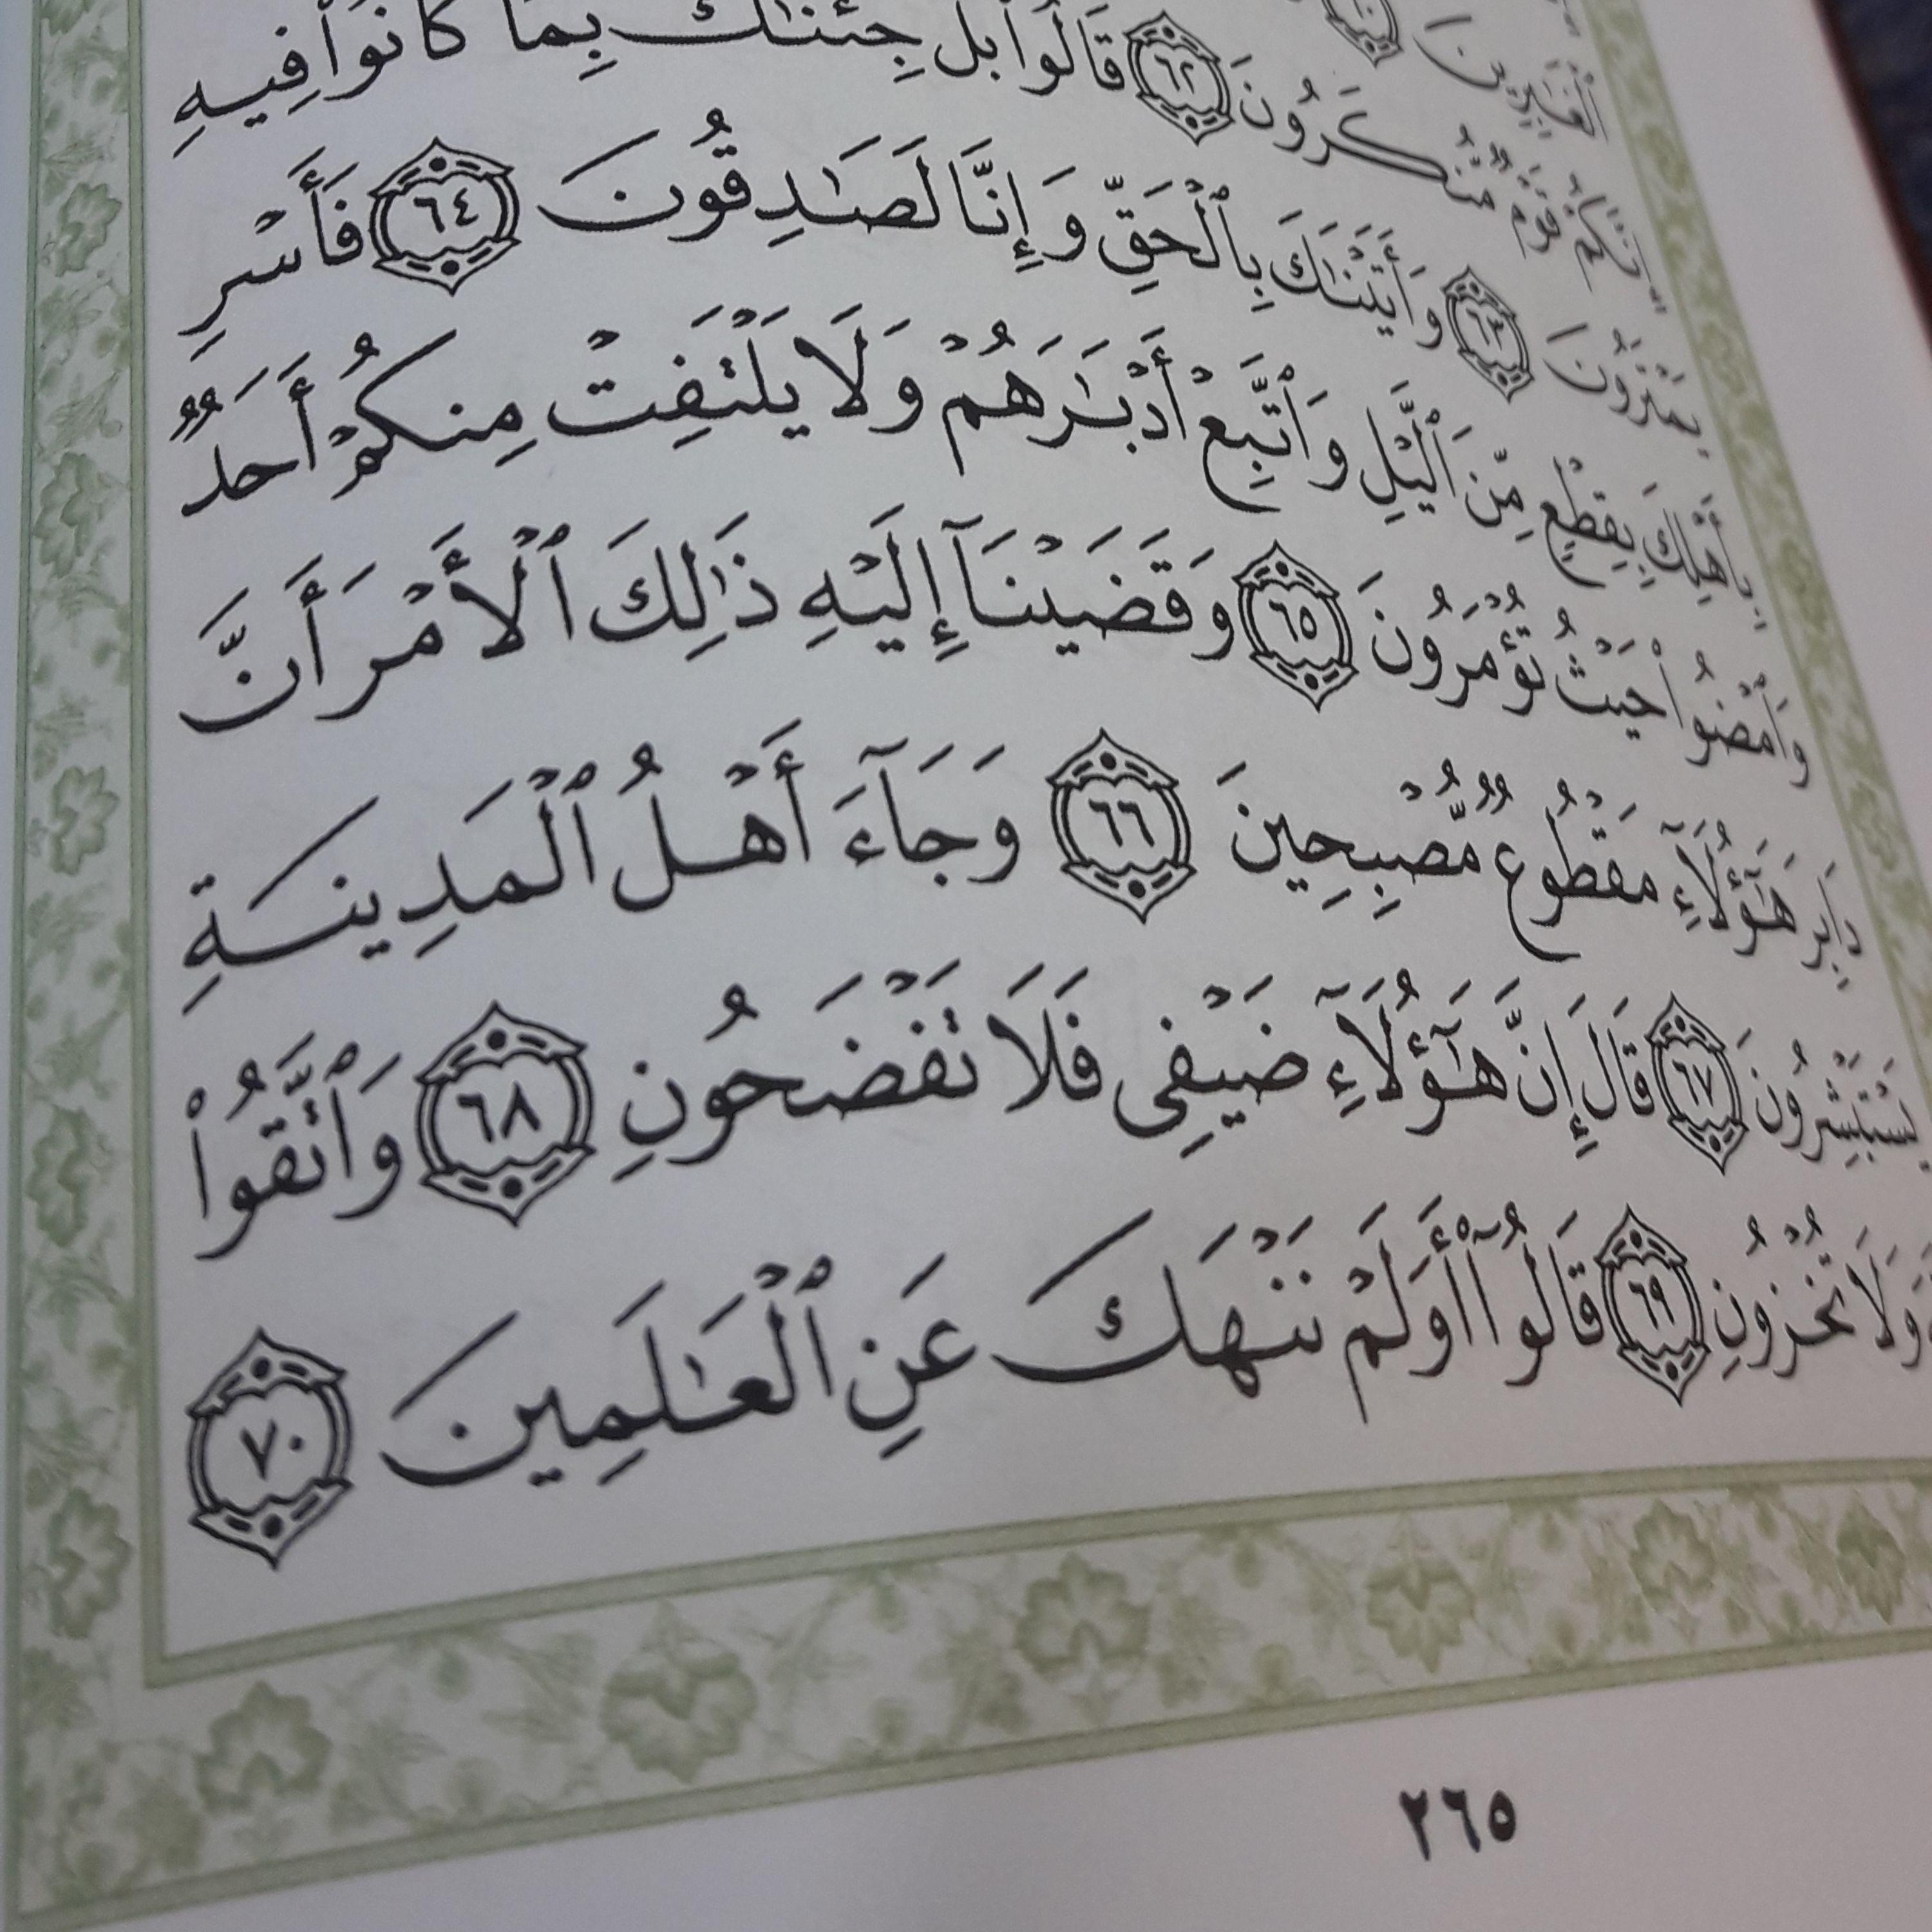 ٱلْغَٰبِرِينَ ٦٠
إِنَّكُمْ قَوْمٌ مُّنكَرُونَ ٦٢ قَالُوا۟ بَلْ جِئْنَٰكَ بِمَا كَانُوا۟ فِيهِ
يَمْتَرُونَ ٦٣ وَأَتَيْنَٰكَ بِٱلْحَقِّ وَإِنَّا لَصَٰدِقُونَ ٦٤ فَأَسْرِ
بِأَهْلِكَ بِقِطْعٍ مِّنَ ٱلَّيْلِ وَٱتَّبِعْ أَدْبَٰرَهُمْ وَلَا يَلْتَفِتْ مِنكُمْ أَحَدٌ
وَٱمْضُوا۟ حَيْثُ تُؤْمَرُونَ ٦٥ وَقَضَيْنَآ إِلَيْهِ ذَٰلِكَ ٱلْأَمْرَ أَنَّ
دَابِرَ هَٰٓؤُلَآءِ مَقْطُوعٌ مُّصْبِحِينَ ٦٦ وَجَآءَ أَهْلُ ٱلْمَدِينَةِ
يَسْتَبْشِرُونَ ٦٧ قَالَ إِنَّ هَٰٓؤُلَآءِ ضَيْفِى فَلَا تَفْضَحُونِ ٦٨ وَٱتَّقُوا۟
وَلَا تُخْزُونِ ٦٩ قَالُوٓا۟ أَوَلَمْ نَنْهَكَ عَنِ ٱلْعَٰلَمِينَ ٧٠
٢٦٥